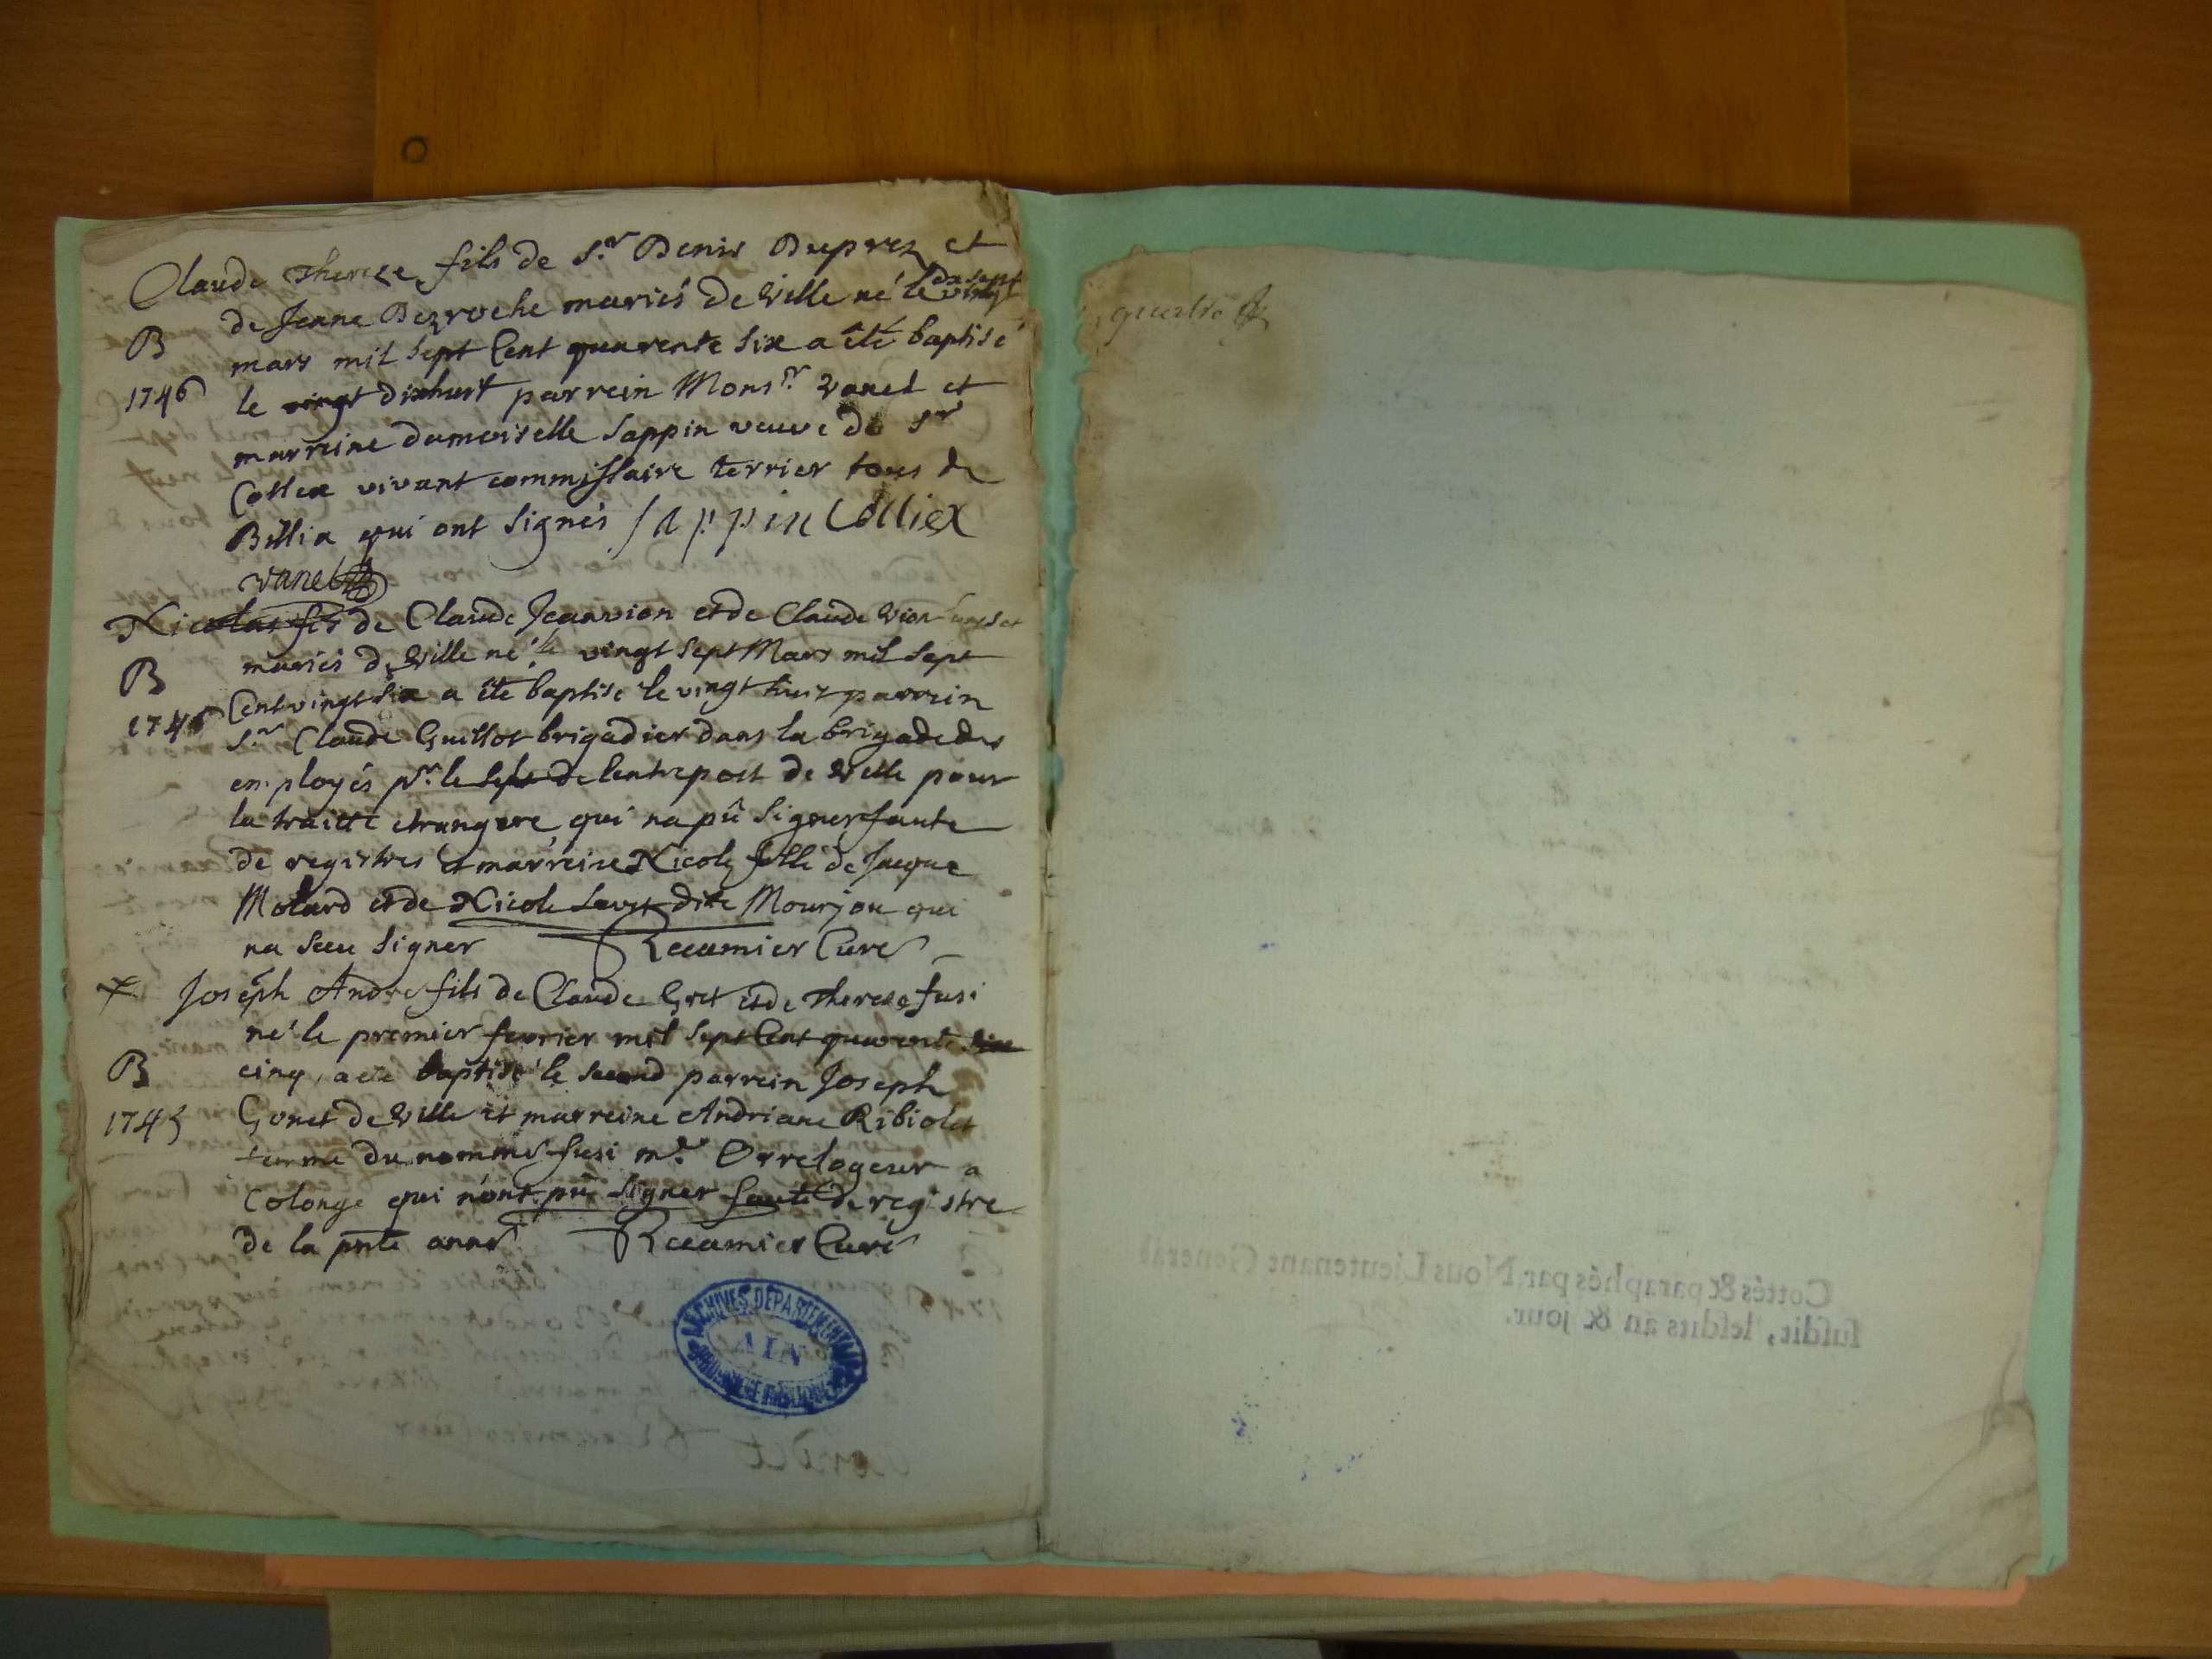 Claude Therese fils de S.r Denis Duprez et
de Jeanne Dezroche mariés de Ville né le dixsept vingt
B
mars mil sept Cent quarente six a été baptisé
1746
le vingt dixhuit parrein Mons.r Vanel et
marreine damoiselle Sappin veuve de S.r
Colliex vivant commissaire terrier tous de
Billia qui ont signés Sappin Colliex
Vanel
Nicolas fils de Claude Jeanvion et de Claude
mariés de Ville né le vingt sept Mars mil sept
B
Cent vingt six a été baptisé le vingt huit parrein
1746
S.r Claude Guillot brigadier dans la brigade des
employés p.r le de lentrepost de Ville pour
la traitte etrangere qui na pû signer faute
de registres et marreine Nicole fille de Jacque
Molard et de Nicole dite Mourjou qui
na sceu signer Recumier Curé
x Joseph André fils de Claude Gret et de Therese fusi
né le premier fevrier mil sept Cent quarente six
B
cinq, a été baptisé le second parrein Joseph
1745
Gonet de Ville et marreine Andriane Ribiolet
femme du nommé fusi m.e Orrelogeur a
Colonge qui nont pû signer faute de registre
de la pnte année Recumier Curé
ARCHIVES DEPARTEMENTALES
AIN
quatre
Cottés & paraphés par Nous Lieutenant General
susdit, lesdits an & jour.